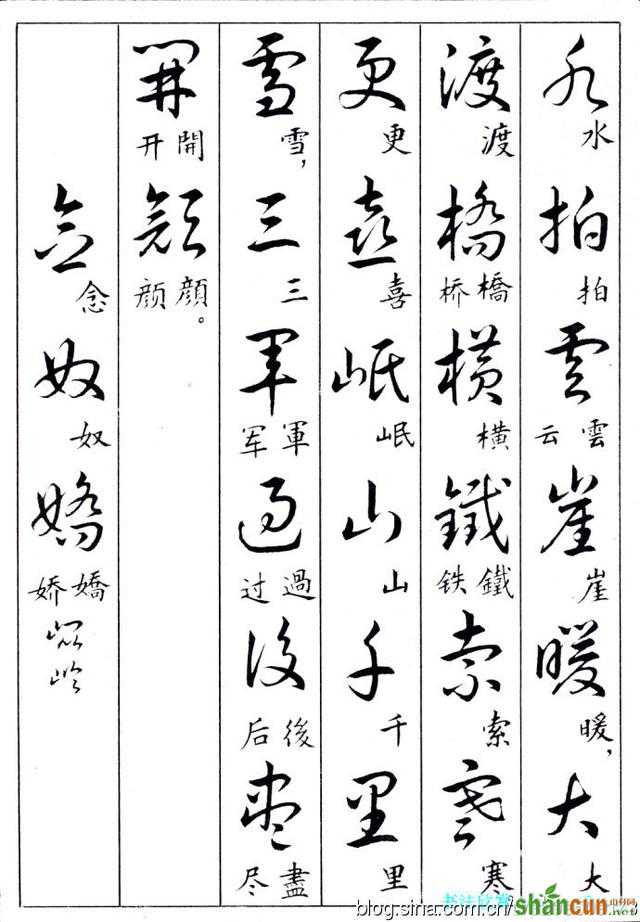 水拍雲崖暖大
水 拍 雲云 崖 暖, 大
渡橋橫鐵索寒
渡 橋桥 橫 鐵铁 索 寒
更喜岷山千里
更 喜 岷 山 千 里
雪三軍過後盡
雪, 三 軍军 過过 後后 盡尽
開顏
開开 顏颜。
念奴嬌
念 奴 嬌娇
shancun
blog.sina.com.cn/